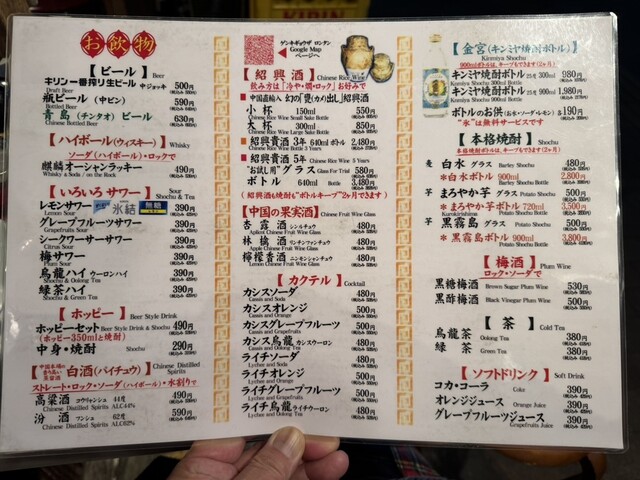 お飲物
【ビール】Beer
キリン一番搾り生ビール 中ジョッキ 500円
Draft Beer
瓶ビール（中ビン） 590円
Bottled Beer
青島（チンタオ）ビール 630円
Chinese Bottled Beer
【ハイボール（ウィスキー）】Whisky
ソーダ（ハイボール）・ロックで
麒麟オーシャンラッキー 490円
Whisky & Soda / on the Rock
【いろいろサワー】Sour & Tea
レモンサワー 氷結 無糖 390円
Lemon Sour
グレープフルーツサワー 390円
Grapefruits Sour
シークワーサーサワー 390円
Citrus Sour
梅サワー 390円
Plum Sour
烏龍ハイ ウーロンハイ 390円
Shochu & Oolong Tea
緑茶ハイ 390円
Shochu & Green Tea
【ホッピー】Beer Style Drink
ホッピーセット Beer Style Drink & Shochu 490円
（ホッピー350mlと焼酎）
中身・焼酎 290円
Shochu
【白酒（パイチュウ）】Chinese Distilled Spirits
ストレート・ロック・ソーダ（ハイボール）・水割りで
高粱酒 コウリャンシュ 44度 490円
Chinese Distilled Spirits ALC44%
汾酒 フンシュ 62度 590円
Chinese Distilled Spirits ALC62%
ゲンキギョウザ ロンタン
Google Map
ページへ
【紹興酒】Chinese Rice Wine
飲み方は「冷や・燗・ロック」お好みで
中国直輸入 幻の「甕（カメ）出し」紹興酒
小杯 150ml 450円
Chinese Rice Wine Small Sake Bottle
大杯 300ml 850円
Chinese Rice Wine Large Sake Bottle
紹興貴酒3年 640ml ボトル 2,480円
Chinese Rice Wine Bottle 3 Years
紹興貴酒5年 Chinese Rice Wine 5 Years
"お試し用"グラス Glass For Trial 580円
ボトル 640ml Bottle 3,480円
（紹興酒も焼酎も"ボトルキープ"2ヶ月できます）
【中国の果実酒】Chinese Fruit Wine
杏露酒 シンルチュウ 480円
Apricot Chinese Fruit Wine Glass
林檎酒 リンチンファンチュウ 480円
Apple Chinese Fruit Wine Glass
檸檬香酒 ニンモンシャンチュウ 480円
Lemon Chinese Fruit Wine Glass
【カクテル】Cocktail
カシスソーダ 480円
Cassis and Soda
カシスオレンジ 500円
Cassis and Orange
カシスグレープフルーツ 500円
Cassis and Grapefruits
カシス烏龍 カシスウーロン 480円
Cassis and Oolong Tea
ライチソーダ 480円
Lychee and Soda
ライチオレンジ 500円
Lychee and Orange
ライチグレープフルーツ 500円
Lychee and Grapefruits
ライチ烏龍 ライチウーロン 480円
Lychee and Oolong Tea
【金宮（キンミヤ焼酎ボトル）】
Kinmiya Shochu
900mlボトルは、キープもできます（2ヶ月）
キンミヤ焼酎ボトル 25度 300ml 980円
Kinmiya Shochu
キンミヤ焼酎ボトル 25度 900ml
Kinmiya Shochu
ボトルのお供（水・ソーダ・レモン）各190円
"氷"は無料サービスです
【本格焼酎】Shochu
本格焼酎ボトルは、キープもできます（2ヶ月）
麦 白水 グラス Barley Shochu 480円
＊白水ボトル900ml 2,800円
芋 まろやか芋 グラス Potato Shochu 500円
＊まろやか芋ボトル720ml 3,500円
Kurokirishima
芋 黒霧島 グラス Potato Shochu 500円
＊黒霧島ボトル900ml 3,800円
【梅酒】Plum Wine
ロック・ソーダで
黒糖梅酒 Brown Sugar Plum Wine 530円
黒酢梅酒 Black Vinegar Plum Wine 500円
【茶】Cold Tea
烏龍茶 Oolong Tea 380円
緑茶 Green Tea 380円
【ソフトドリンク】Soft Drink
コカ・コーラ Coke 390円
オレンジジュース Orange Juice 390円
グレープフルーツジュース 390円
Grapefruits Juice